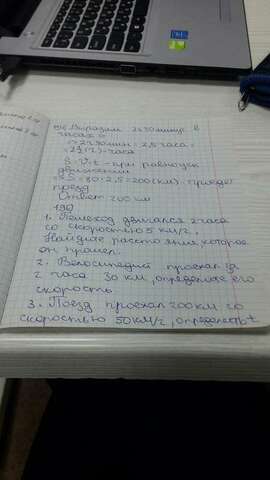 Выразим 2ч30минут в
часах
2ч30мин = 2,5часа =
часа
S=V·t - при равноуск
движении
S=80·2,5=200(км) - проедет
поезд
Ответ: 200 км
190)
1. Пешеход двигался 2 часа
со скоростью 5 км/г.
Найдите расстояния, которое
он прошел.
2. Велосипедист проехал за
2 часа 30 км, определите его
скорость
3. Поезд проехал 200 км со
скоростью 50 км/г, определить t